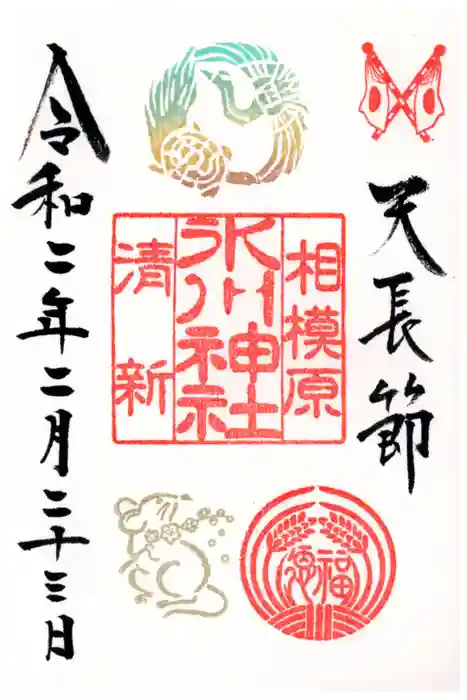 天長節
相模原
氷川神社
清新
福德
令和二年二月二十三日